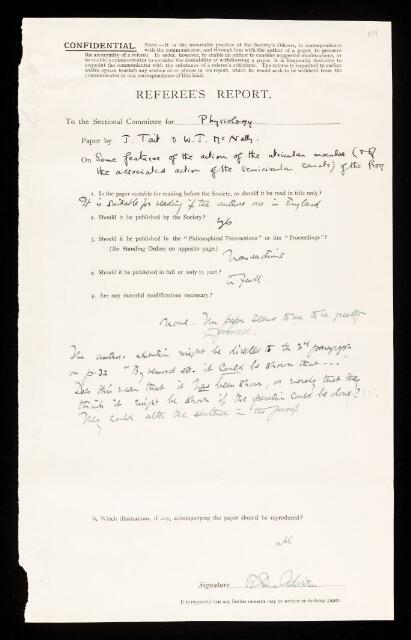 101
CONFIDENTIAL. NOTE.—It is the invariable practice of the Society's Officers, in correspondence
with the communicator, and through him with the author of a paper, to preserve
the anonymity of a referee. In order, however, to enable an author to consider suggested modifications, or
to enable a communicator to consider the desirability of withdrawing a paper, it is frequently desirable to
acquaint the communicator with the substance of a referee's criticisms. The referee is requested to enclose
within square brackets any section of or phrases in his report, which he would wish to be withheld from the
communicator in any correspondence of this kind.
REFEREE'S REPORT.
To the Sectional Committee for Physiology
Paper by J. Tait & W. J. McNally.
On Some features of the action of the utricular maculae (& of
the associated action of the semicircular canals) of the frog
1. Is the paper suitable for reading before the Society, or should it be read in title only?
It is suitable for reading if the authors are in England
2. Should it be published by the Society?
Yes
3. Should it be published in the "Philosophical Transactions" or the "Proceedings"?
(See Standing Orders on opposite page.)
Transactions
4. Should it be published in full or only in part?
in full
5. Are any material modifications necessary?
None. The paper seems to me to be greatly
improved.
The authors attention might be directed to the 3rd paragraph
on p. 32 "By it could be shown that..."
Does this mean that it has been shown, or merely that they
think it might be shown if the operation could be done?
They could alter the sentence in the proof.
6. Which illustrations, if any, accompanying the paper should be reproduced?
all
Signature
It is requested that any further remarks may be written on foolscap paper.